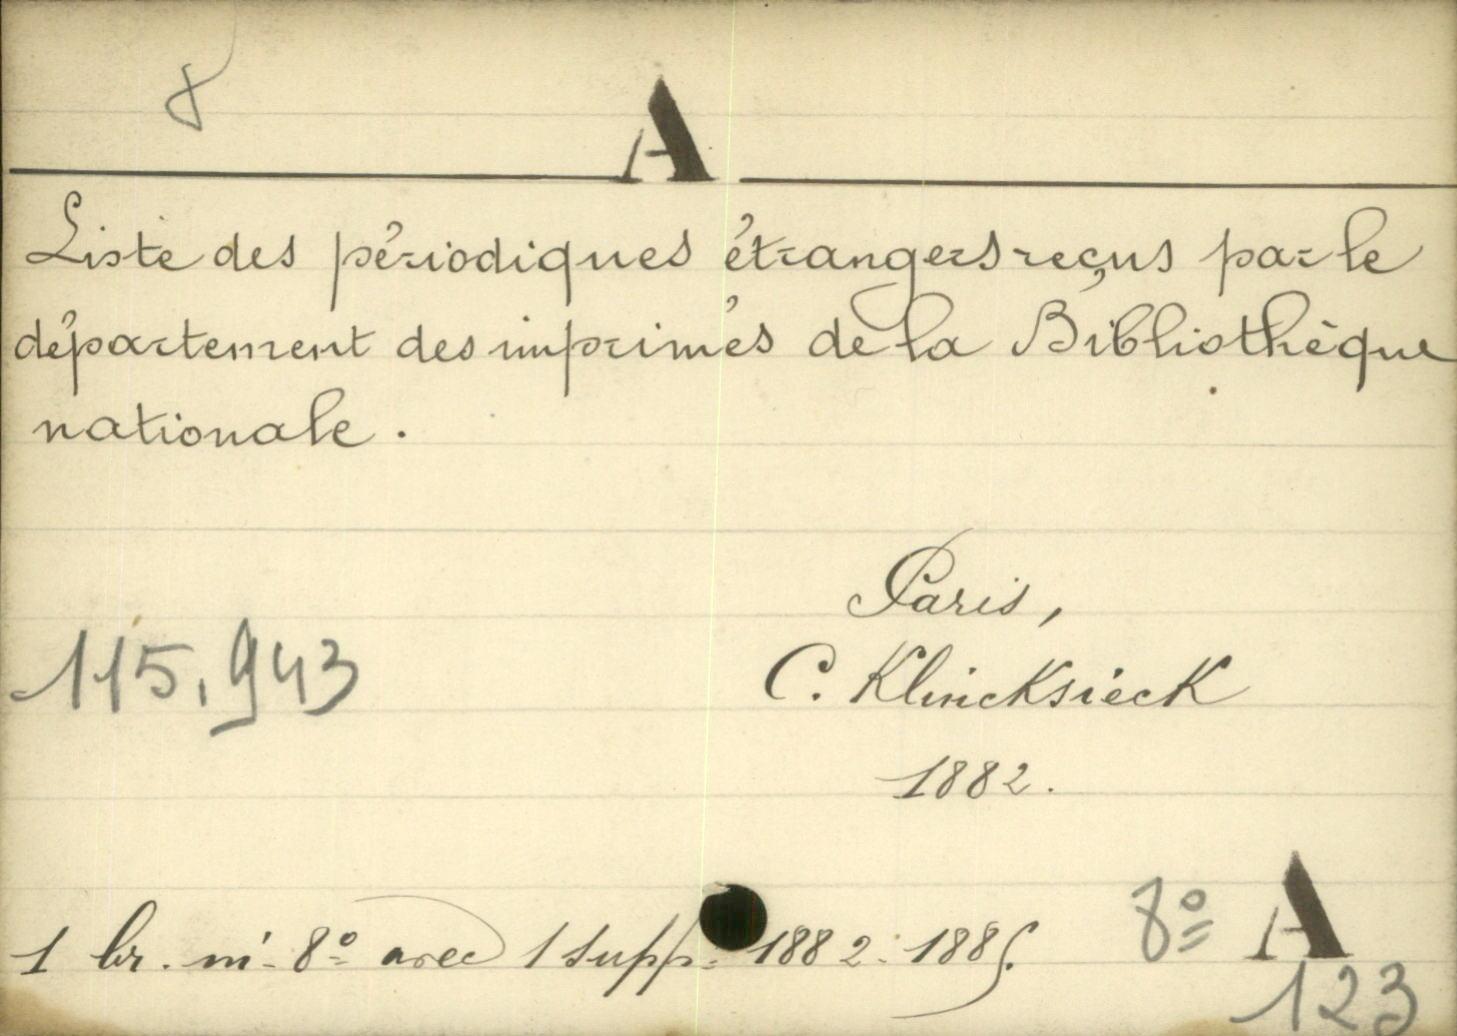 8
A
Liste des périodiques étrangers reçus par le
département des imprimés de la Bibliothèque
nationale.
Paris,
115,943
C. Klincksieck
1882.
1 br. in-8º avec 1 supp. 1882-1885.
8º A
123